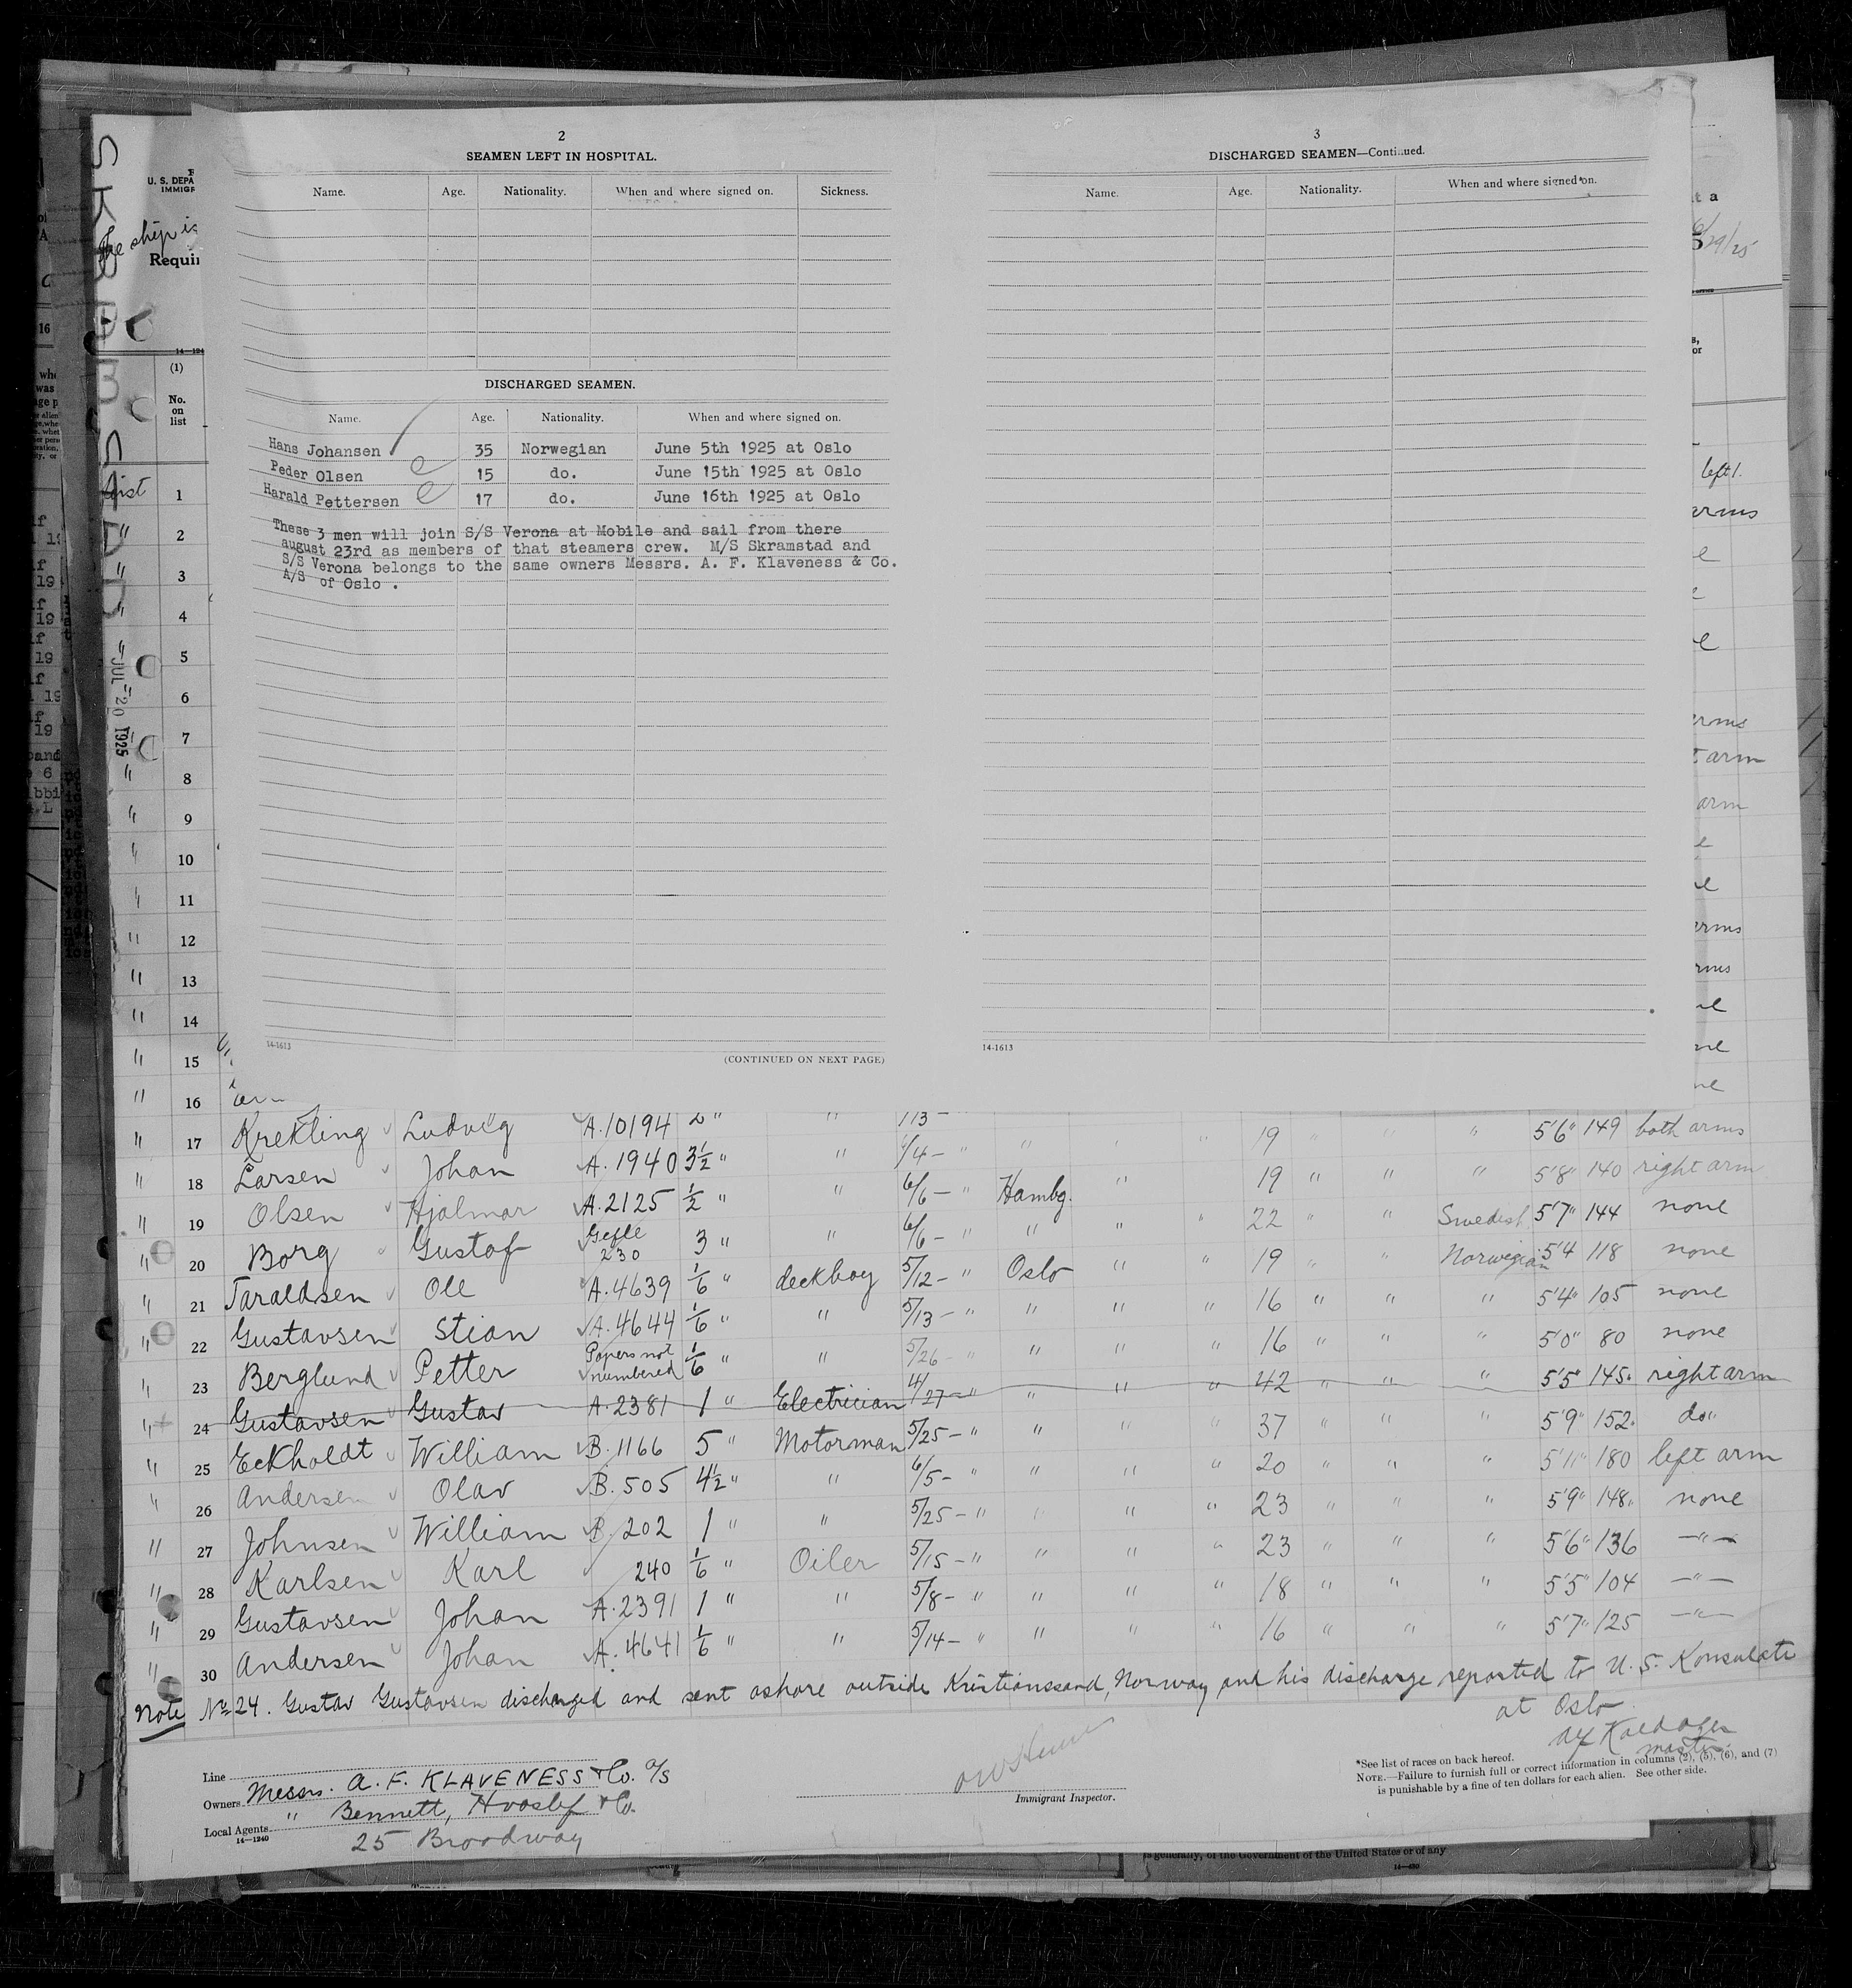 2
SEAMEN LEFT IN HOSPITAL.
Name. Age. Nationality. When and where signed on. Sickness.
DISCHARGED SEAMEN.
Name. Age. Nationality. When and where signed on.
Hans Johansen 35 Norwegian June 5th 1925 at Oslo
Peder Olsen 15 do. June 15th 1925 at Oslo
Harald Pettersen 17 do. June 16th 1925 at Oslo
These 3 men will join S/S Verona at Mobile and sail from there
august 23rd as members of that steamers crew. M/S Skramstad and
S/S Verona belongs to the same owners Messrs. A. F. Klaveness & Co.
A/S of Oslo .
14-1613
(CONTINUED ON NEXT PAGE)
3
DISCHARGED SEAMEN—Continued.
Name. Age. Nationality. When and where signed on.
14-1613
U. S. DEPA
IMMIGR
The ship is
Requi
(1)
No.
on
list
JUL 20 1925
1
2
3
4
5
6
7
8
9
10
11
12
13
14
15
16
17 Krekling Ludvig A.10194 2 " " 19 " " " 5'6" 149 both arms
18 Larsen Johan A.1940 3½ " " 6/4 - " " " " 19 " " " 5'8" 140 right arm
19 Olsen Hjalmar A.2125 ½ " " 6/6 - " Hambg. " " 22 " " Swedish 5'7" 144 none
20 Borg Gustaf Gefle 230 3 " " 6/6 - " " " " 19 " " Norwegian 5'4 118 none
21 Taraldsen Ole A.4639 1/6 " deckboy 5/12 - " Oslo " " 16 " " " 5'4" 105 none
22 Gustavsen Stian A.4644 1/6 " " 5/13 - " " " " 16 " " " 5'0" 80 none
23 Berglund Petter Papers not numbered 1/6 " " 5/26 - " " " " 42 " " " 5'5" 145 right arm
24 Gustavsen Gustav A.2381 1 " Electrician 4/27 - " " " " 37 " " " 5'9" 152 do"
25 Eckholdt William B.1166 5 " Motorman 5/25 - " " " " 20 " " " 5'11" 180 left arm
26 Andersen Olav B.505 4½ " " 6/5 - " " " " 23 " " " 5'9" 148 none
27 Johnsen William B.202 1 " " 5/25 - " " " " 23 " " " 5'6" 136 —"—
28 Karlsen Karl 240 1/6 " Oiler 5/15 - " " " " 18 " " " 5'5" 104 —"—
29 Gustavsen Johan A.2391 1 " " 5/8 - " " " " 16 " " " 5'7" 125 —"—
30 Andersen Johan A.4641 1/6 " " 5/14 - " "
Note No 24. Gustav Gustavsen discharged and sent ashore outside Kristianssand, Norway and his discharge reported to U. S. Konsulate
at Oslo
master.
Line
Owners Messrs. A. F. KLAVENESS & Co. A/S
Local Agents " Bennett, Hvoslef & Co.
14—1240
25 Broadway
Immigrant Inspector.
*See list of races on back hereof.
NOTE.—Failure to furnish full or correct information in columns (2), (5), (6), and (7)
is punishable by a fine of ten dollars for each alien. See other side.
is generally, of the Government of the United States or of any